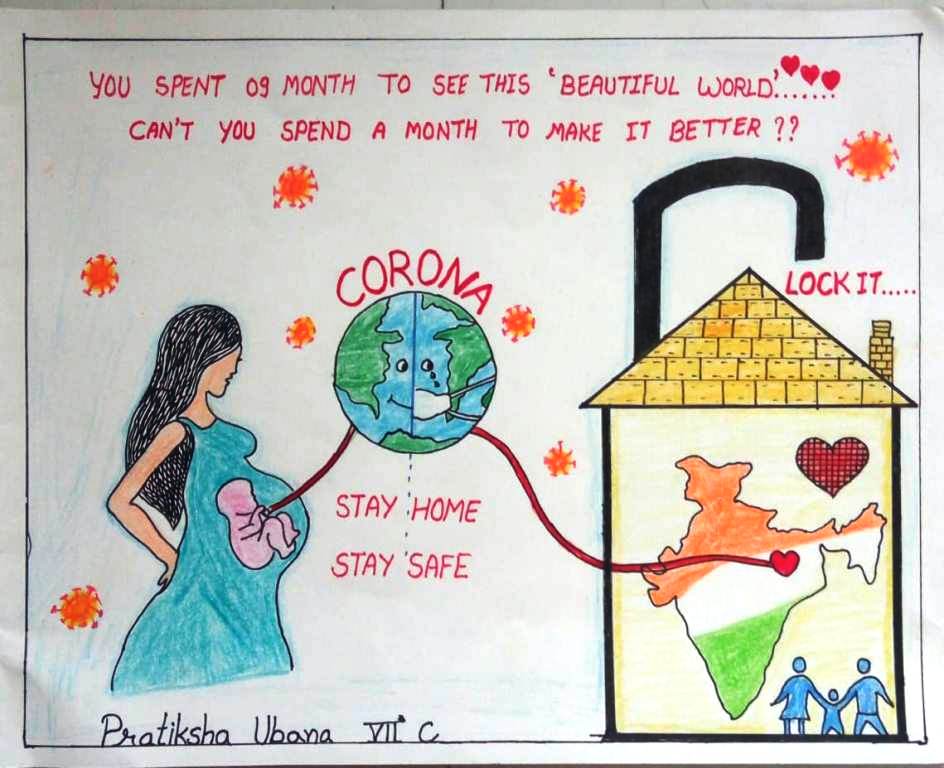 YOU SPENT 09 MONTH TO SEE THIS 'BEAUTIFUL WORLD'.......
CAN'T YOU SPEND A MONTH TO MAKE IT BETTER ??
CORONA
LOCK IT.....
STAY HOME
STAY SAFE
Pratiksha Ubana VIIth C